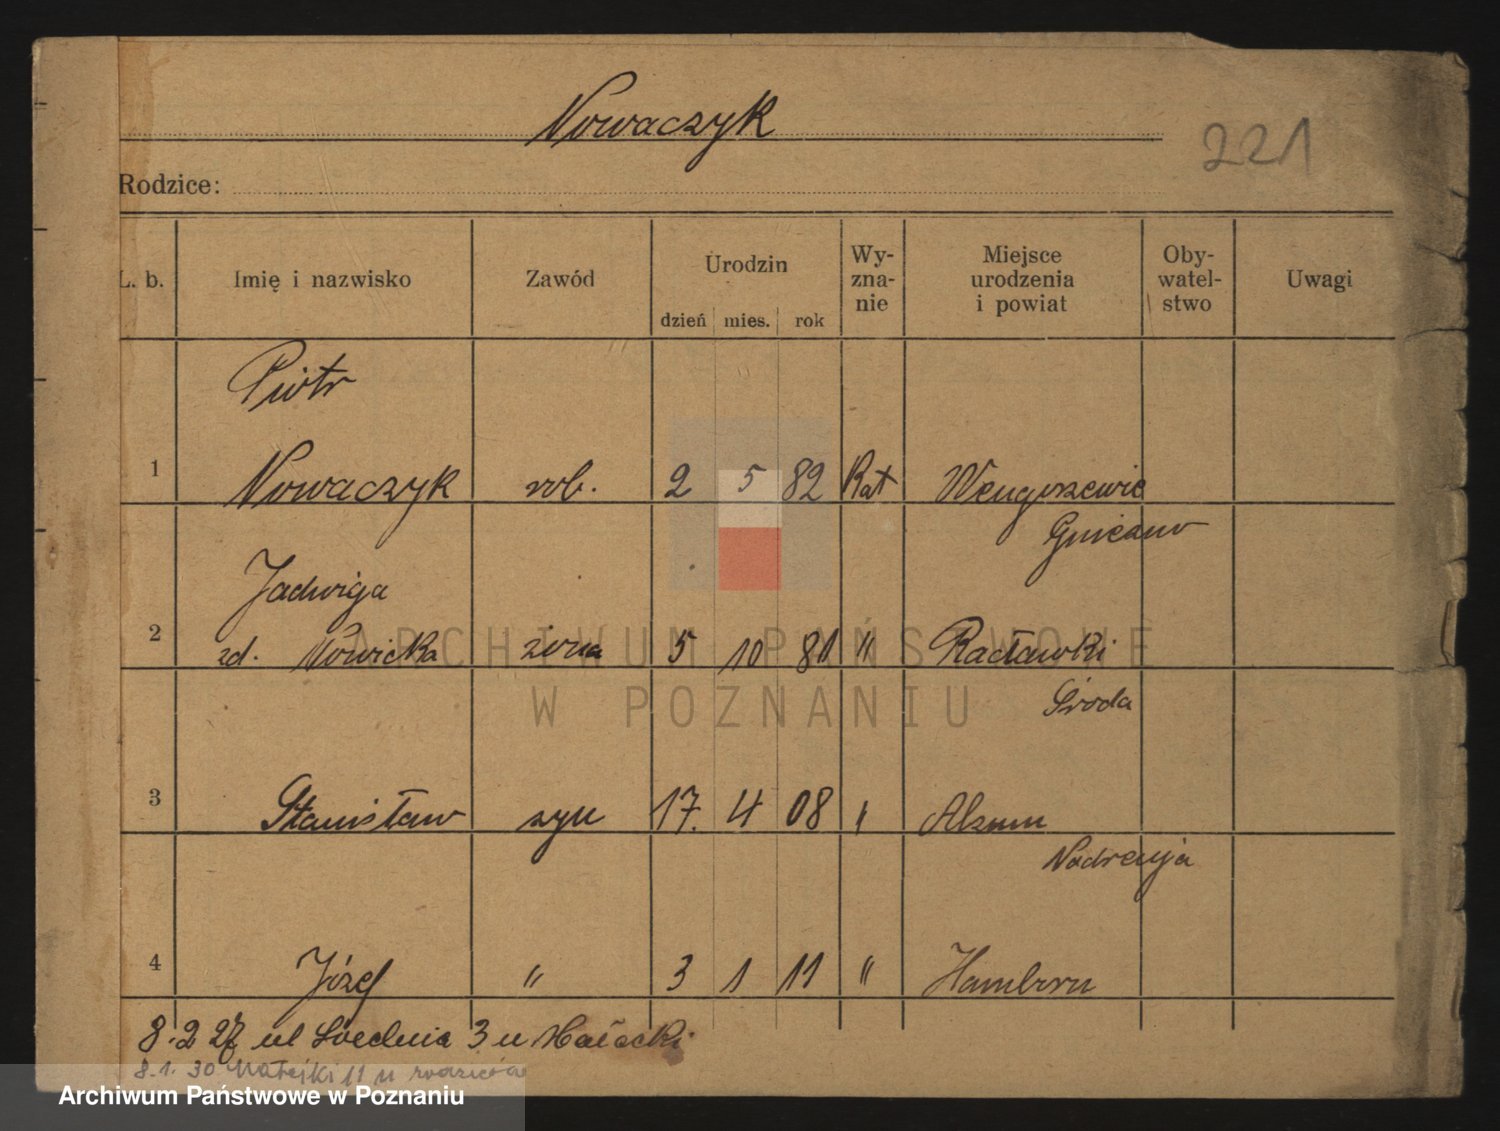 Nowaczyk
221
Rodzice:
L. b. Imię i nazwisko Zawód Urodzin dzień mies. rok Wy-zna-nie Miejsce urodzenia i powiat Oby-watel-stwo Uwagi
Piotr
1 Nowaczyk rob. 2 5 82 Kat
Jadwiga
2 zd. Nowicka żona 5 10 81 " Racławki
Środa
3 Stanisław syn 17. 4 08 "
Nadrenja
4 Józef " 3 1 11 " Hamborn
8.2 27 ul Średnia 3 u
8.1.30 Matejki 11 u rodziców
ARCHIWUM PAŃSTWOWE
W POZNANIU
Archiwum Państwowe w Poznaniu